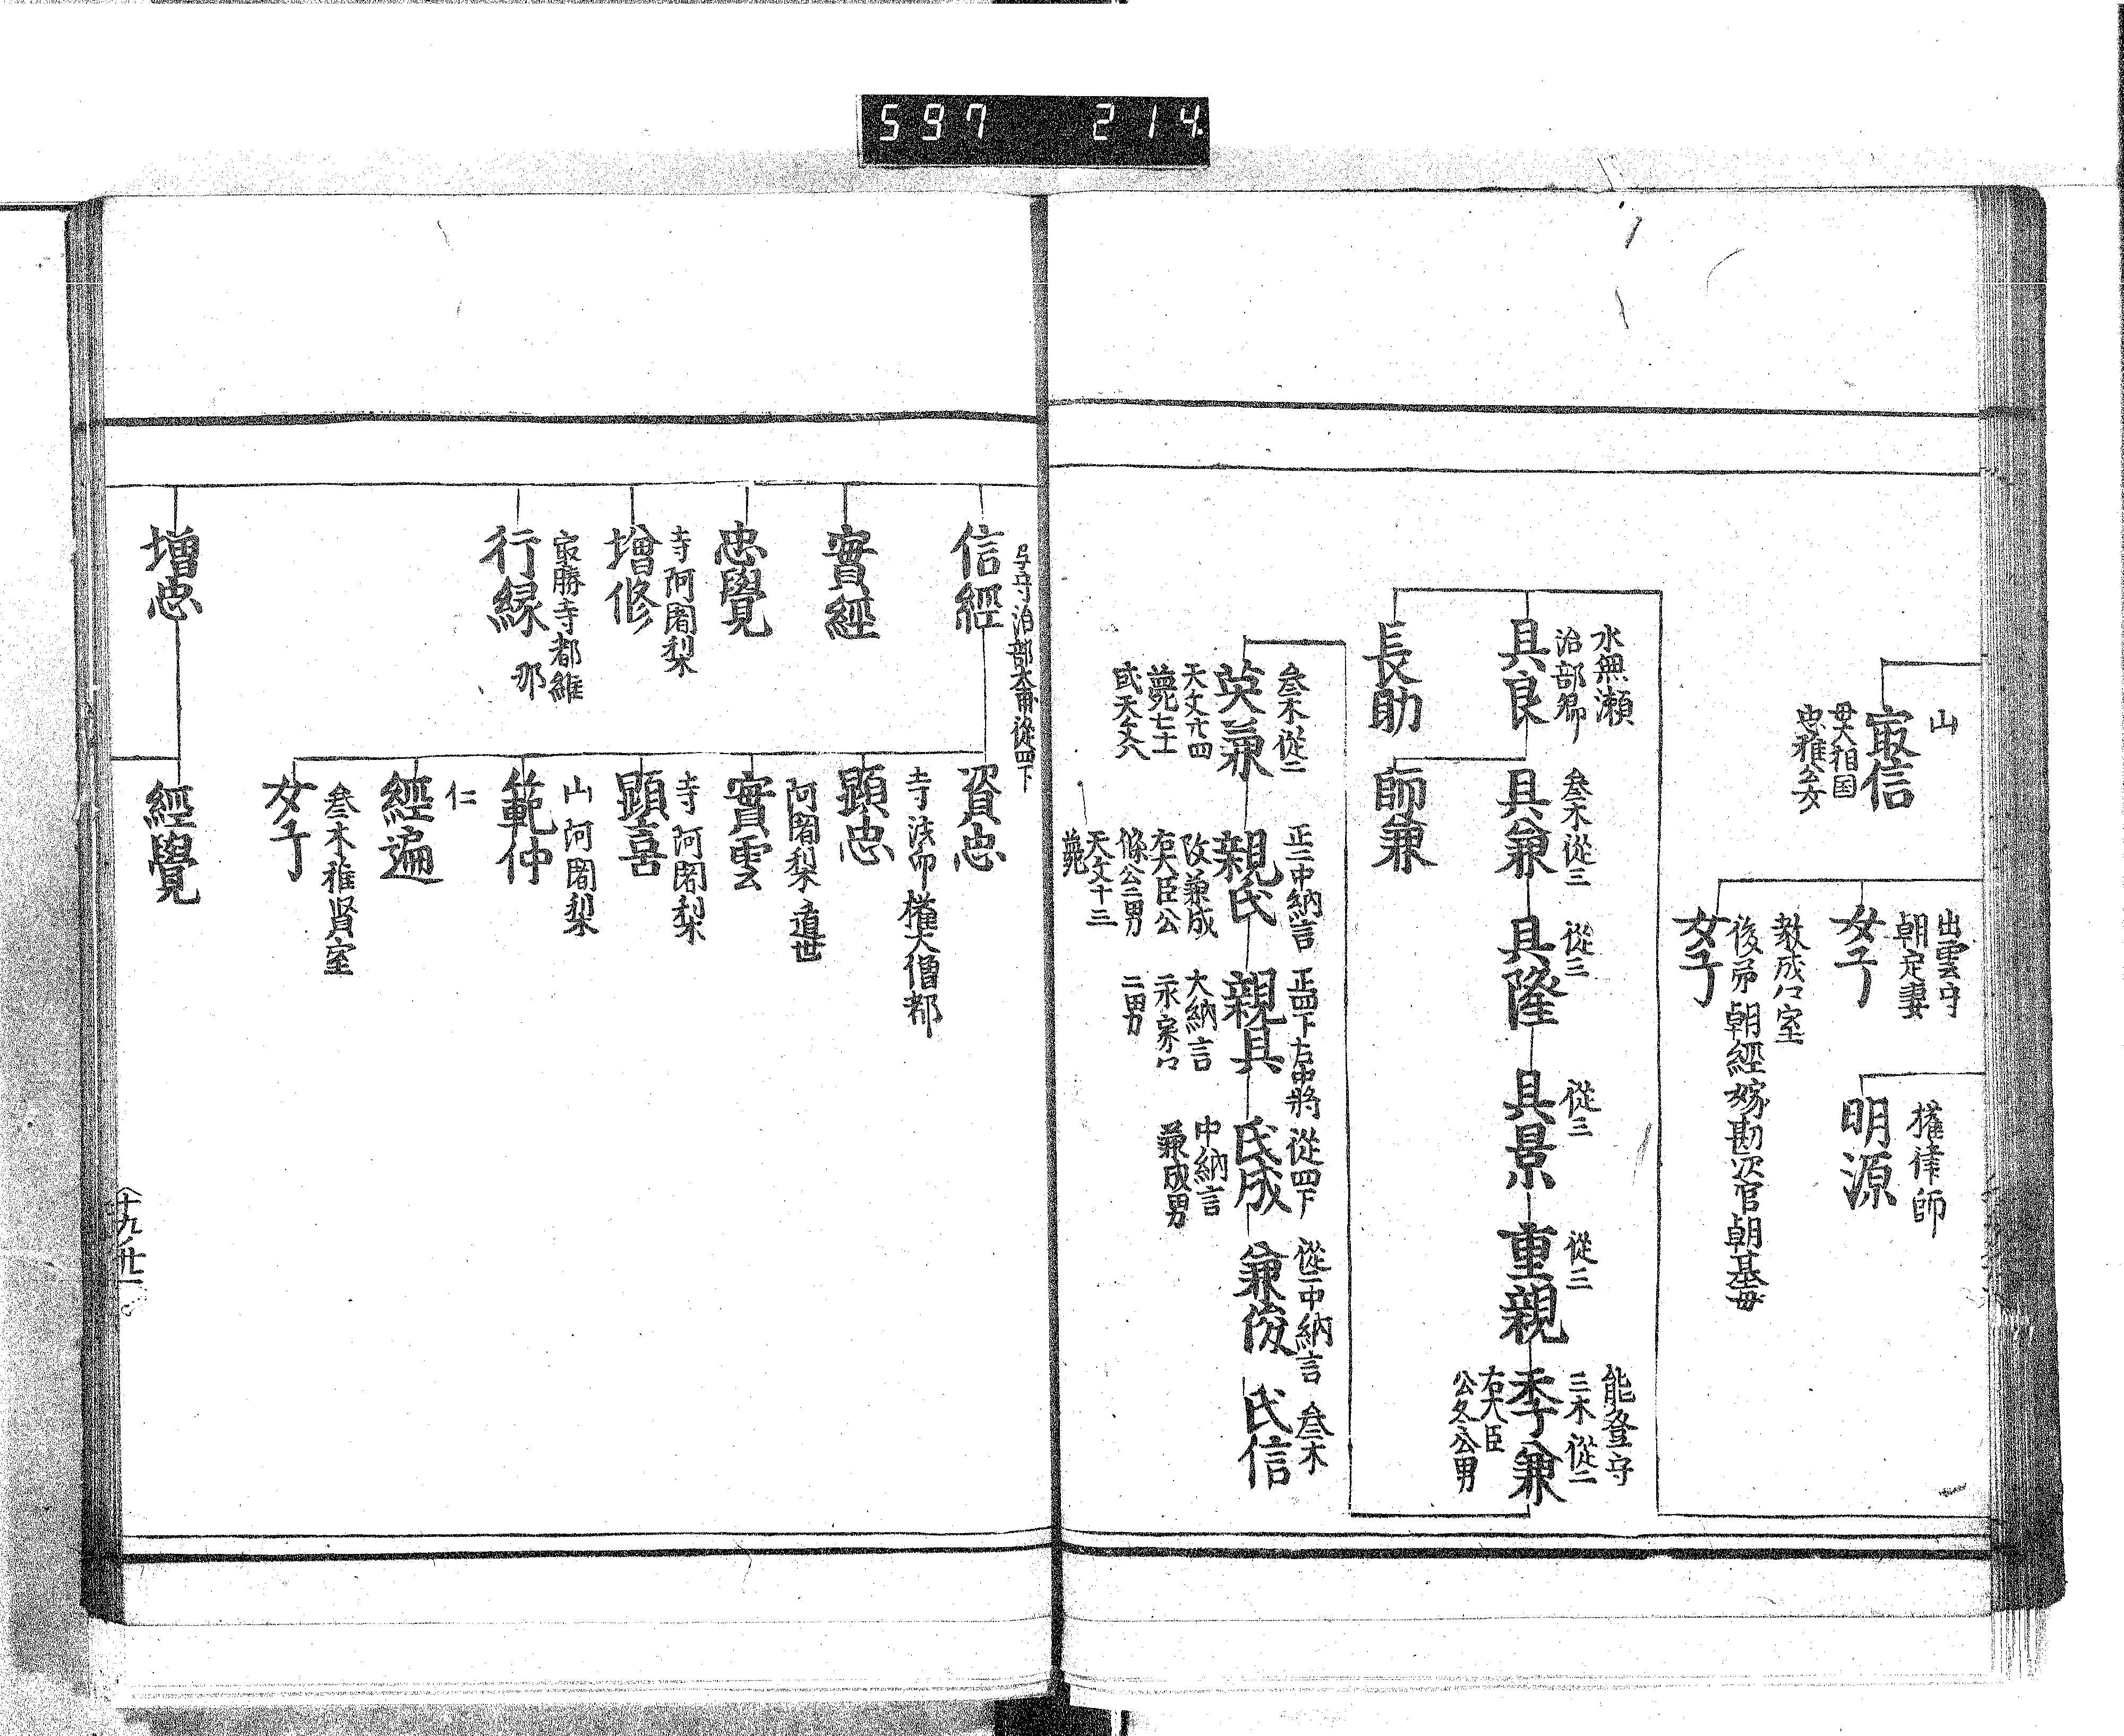 597 214
山
冣信
母大相国
忠雅公女
出雲守
朝定妻
女子
教成公室
後帰朝經嫁勘次官朝基母
女子
權律師
明源
水無瀬
治部卿
具良
長助
叄木從三
具兼
師兼
從三
具隆
從三
具景
從三
重親
能登守
三木從二
季兼
右大臣
公冬公男
叄木從二
英兼
天文廾四
薨七十
或天文八
正二中納言
親氏
改兼成
右大臣公
條公二男
天文十三
薨
正四下右中將
親具
大納言
二男
從四下
氏成
中納言
兼成男
從二中納言
兼俊
叄木
氏信
信經
實經
忠覺
寺阿闍梨
增修
冣勝寺都維
那
行縁
增忠
資忠
寺法印權大僧都
顕忠
阿闍梨 遁世
實雲
寺阿闍梨
顕喜
山阿闍梨
範仲
仁
經遍
叄木雅賢室
女子
經覺
十九ノ廿一